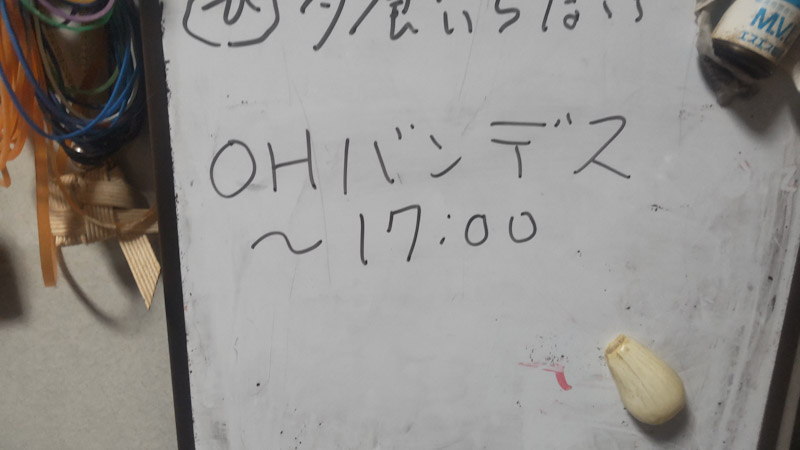 夕食いらない
OHバンデス
～17:00
M.V.
エスエス